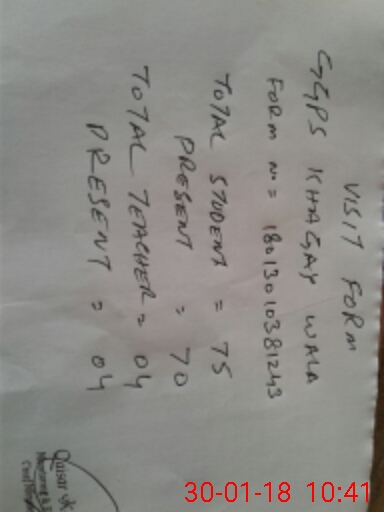 VISIT FORM
GGPS KHAGAY WALA
FORM NO = 18013010381243
TOTAL STUDENT = 75
PRESENT = 70
TOTAL TEACHER = 04
PRESENT = 04
Qaisar
Monitoring &
30-01-18 10:41